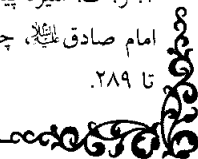 امام صادق علیه‌السلام، چ
تا ۲۸۹.